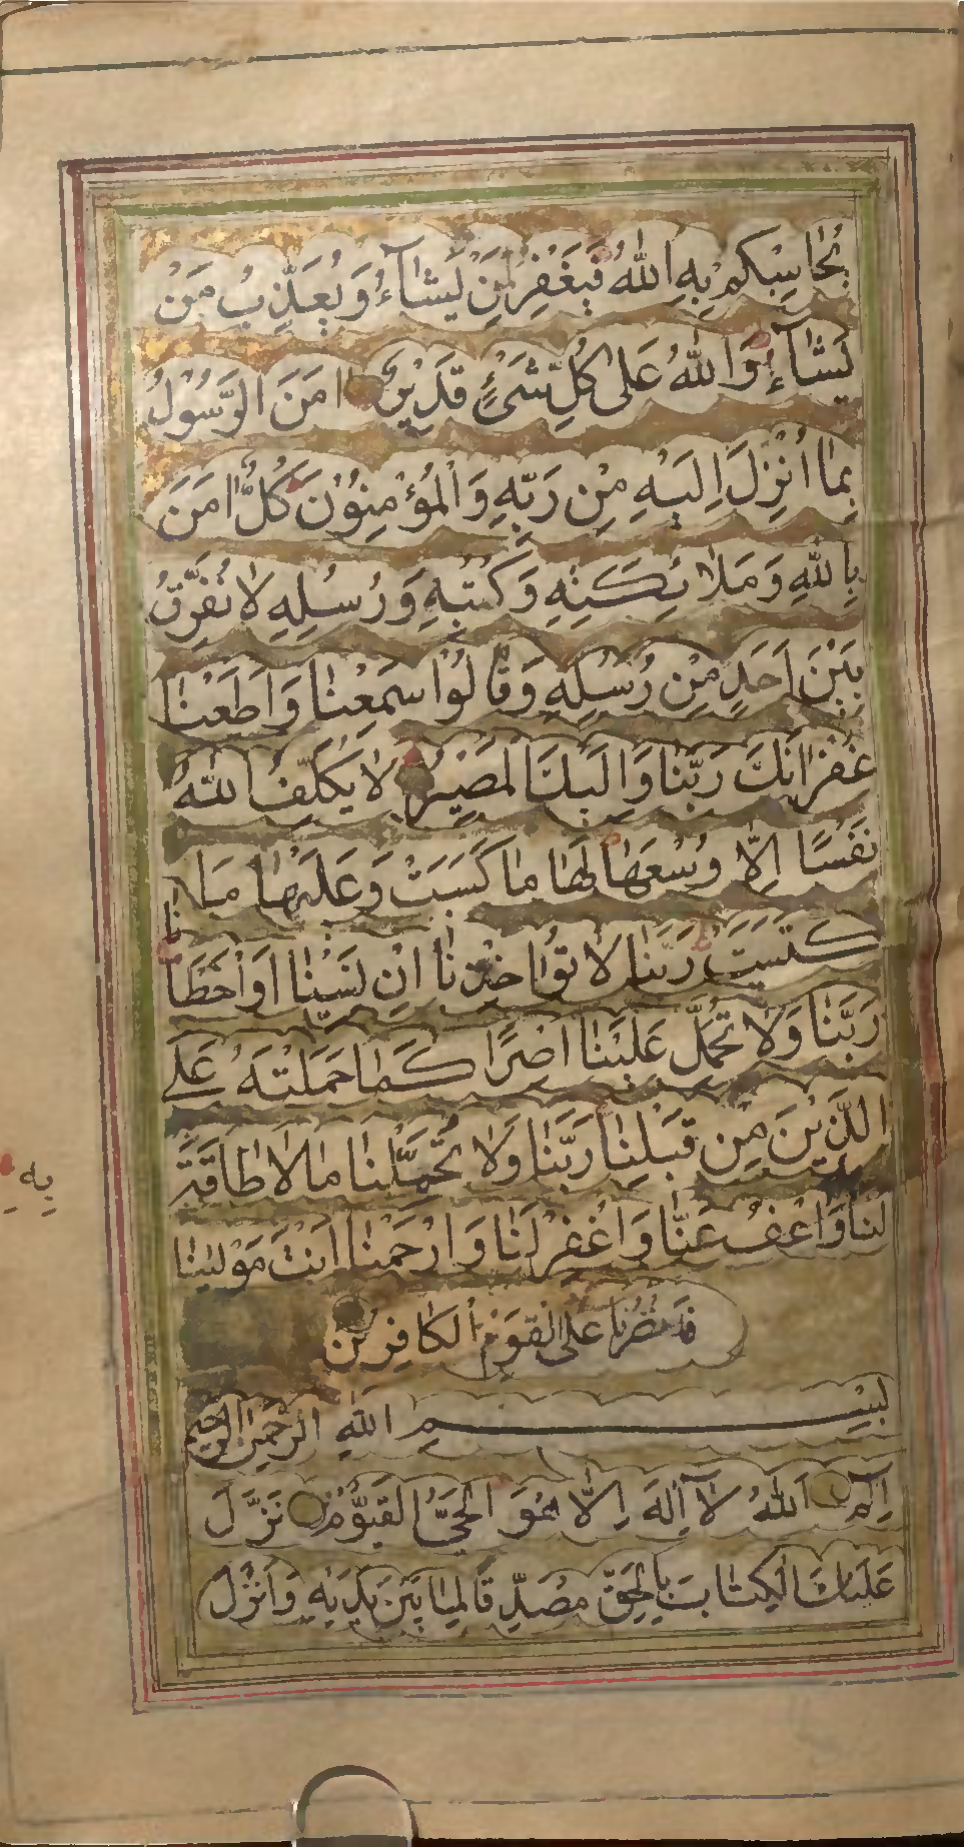 يُحَاسِبْكُمْ بِهِ اللّٰهُ فَيَغْفِرُ لِمَنْ يَشَآءُ وَيُعَذِّبُ مَنْ
يَشَآءُ وَاللّٰهُ عَلٰى كُلِّ شَىْءٍ قَدِيْرٌ اٰمَنَ الرَّسُوْلُ
بِمَا اُنْزِلَ اِلَيْهِ مِنْ رَبِّهِ وَالْمُؤْمِنُوْنَ كُلٌّ اٰمَنَ
بِاللّٰهِ وَمَلَائِكَتِهِ وَكُتُبِهِ وَرُسُلِهِ لَا نُفَرِّقُ
بَيْنَ اَحَدٍ مِنْ رُسُلِهِ وَقَالُوْا سَمِعْنَا وَاَطَعْنَا
غُفْرَانَكَ رَبَّنَا وَاِلَيْكَ الْمَصِيْرُ لَا يُكَلِّفُ اللّٰهُ
نَفْسًا اِلَّا وُسْعَهَا لَهَا مَا كَسَبَتْ وَعَلَيْهَا مَا
كْتَسَبَتْ رَبَّنَا لَا تُؤَاخِذْنَا اِنْ نَسِيْنَا اَوْ اَخْطَاْنَا
رَبَّنَا وَلَا تَحْمِلْ عَلَيْنَا اِصْرًا كَمَا حَمَلْتَهُ عَلَى
الَّذِيْنَ مِنْ قَبْلِنَا رَبَّنَا وَلَا تُحَمِّلْنَا مَا لَا طَاقَةَ
لَنَا وَاعْفُ عَنَّا وَاغْفِرْ لَنَا وَارْحَمْنَا اَنْتَ مَوْلٰينَا
فَانْصُرْنَا عَلَى الْقَوْمِ الْكَافِرِيْنَ
بِسْمِ اللّٰهِ الرَّحْمٰنِ الرَّحِيْمِ
الٓمٓ اَللّٰهُ لَآ اِلٰهَ اِلَّا هُوَ الْحَيُّ الْقَيُّوْمُ نَزَّلَ
عَلَيْكَ الْكِتَابَ بِالْحَقِّ مُصَدِّقًا لِمَا بَيْنَ يَدَيْهِ وَاَنْزَلَ
بِهِ